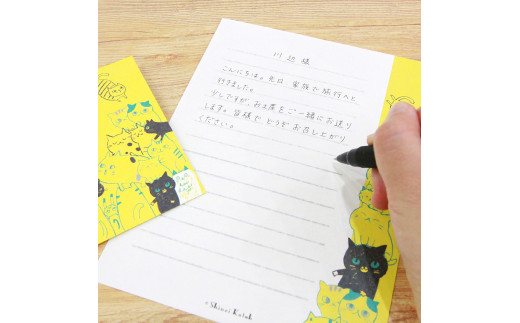 川辺様
こんにちは。先日 家族で旅行へと
行きました。
少しですが、お土産をご一緒にお送り
します。皆様で どうぞ お召し上がり
ください。
©Shinzi Katoh